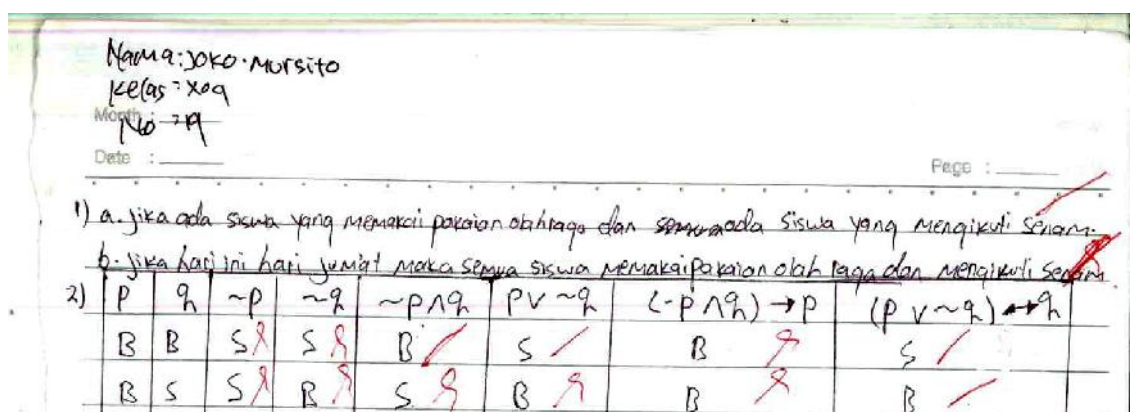 Nama: Joko Mursito
Kelas = X09
Month :
No = 19
Date :
Page :
1) a. Jika ada siswa yang memakai pakaian olahraga dan ada siswa yang mengikuti senam.
b. Jika hari ini hari jumat maka semua siswa memakai pakaian olah raga dan mengikuti senam
2) P q ~P ~q ~P∧q P∨~q (~P∧q)→P (P∨~q)↔q
B B S S B S B S
B S S B S B B B